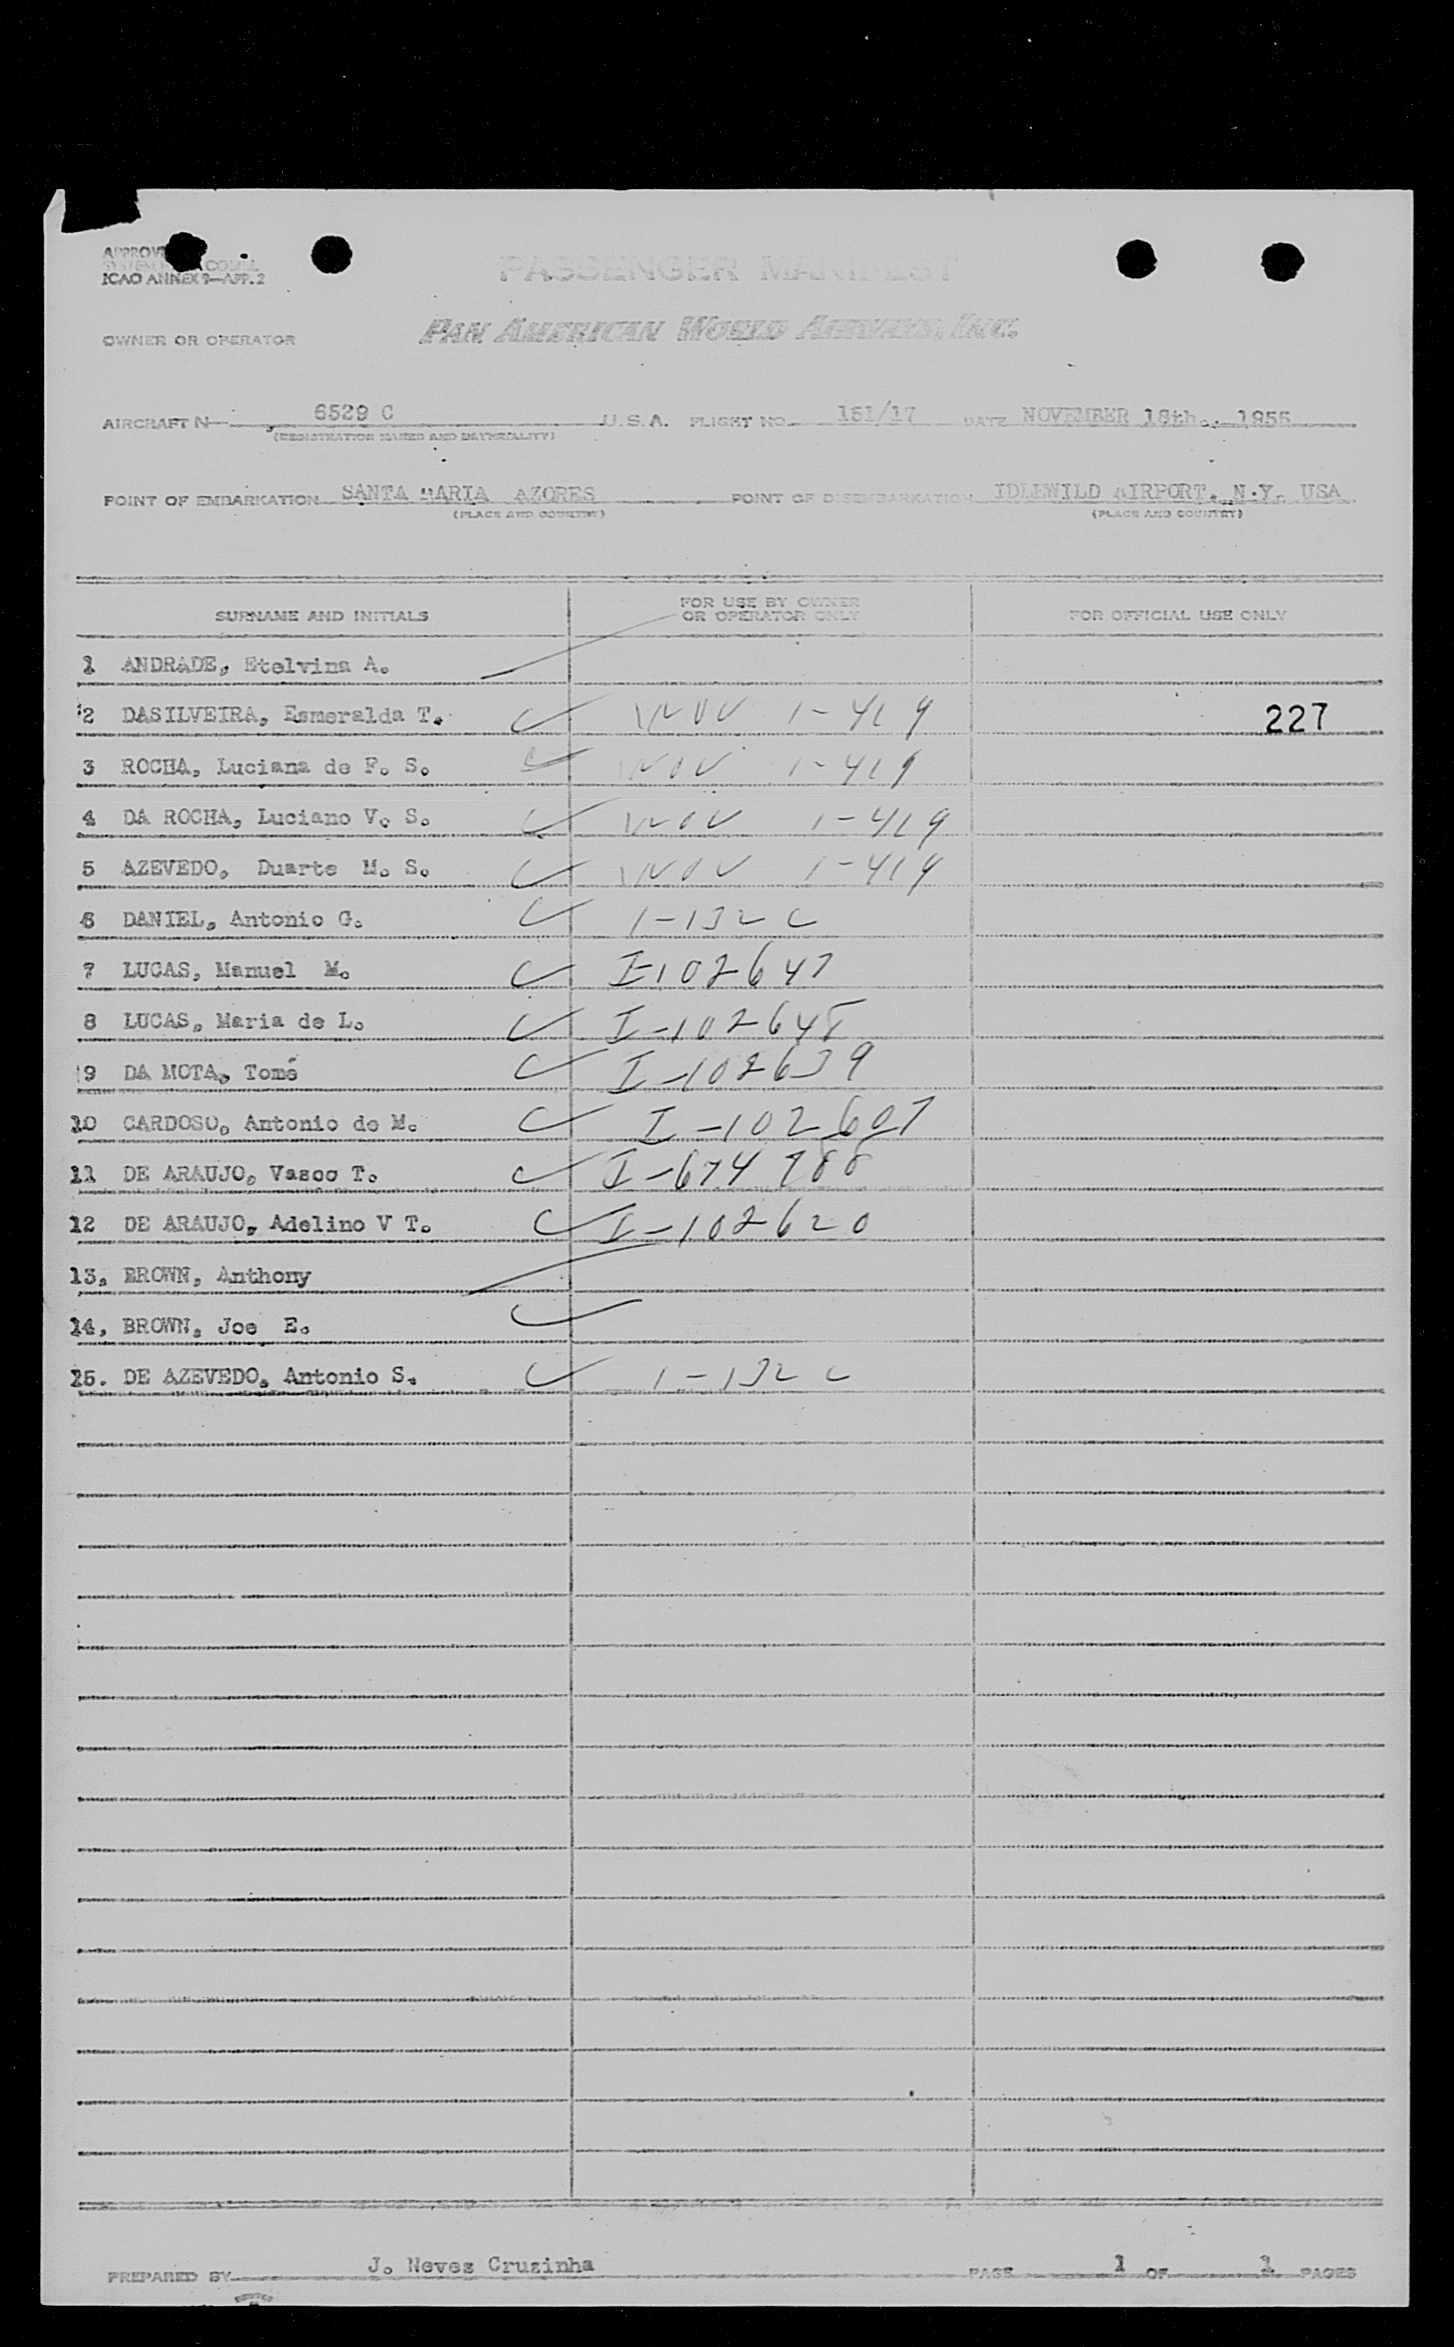 ICAO ANNEX 9—APP. 2
PASSENGER MANIFEST
OWNER OR OPERATOR PAN AMERICAN WORLD AIRWAYS, INC.
AIRCRAFT N 6529 C U.S.A. FLIGHT NO. 151/17 DATE NOVEMBER 18th., 1955
(REGISTRATION MARKS AND NATIONALITY)
POINT OF EMBARKATION SANTA MARIA AZORES POINT OF DISEMBARKATION IDLEWILD AIRPORT, N.Y. USA
(PLACE AND COUNTRY) (PLACE AND COUNTRY)
SURNAME AND INITIALS FOR USE BY OWNER OR OPERATOR ONLY FOR OFFICIAL USE ONLY
1 ANDRADE, Etelvina A.
2 DASILVEIRA, Esmeralda T. 1-419 227
3 ROCHA, Luciana de F. S. 1-419
4 DA ROCHA, Luciano V. S. 1-419
5 AZEVEDO, Duarte M. S. 1-419
6 DANIEL, Antonio G. 1-132 C
7 LUCAS, Manuel M. I-102647
8 LUCAS, Maria de L. I-102648
9 DA MOTA, Tomé I-102639
10 CARDOSO, Antonio de M. I-102607
11 DE ARAUJO, Vasco T. I-674788
12 DE ARAUJO, Adelino V T. I-102620
13. BROWN, Anthony
14. BROWN, Joe E.
15. DE AZEVEDO, Antonio S. 1-132 C
PREPARED BY J. Neves Cruzinha PAGE 1 OF 1 PAGES